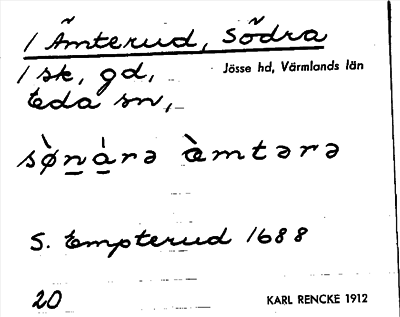 / Ämterud, Södra
/ sk, gd,
Jösse hd, Värmlands län
Eda sn,
sø̀n̲à̲rə æ̀mtərə
S. Empterud 1688
20
KARL RENCKE 1912